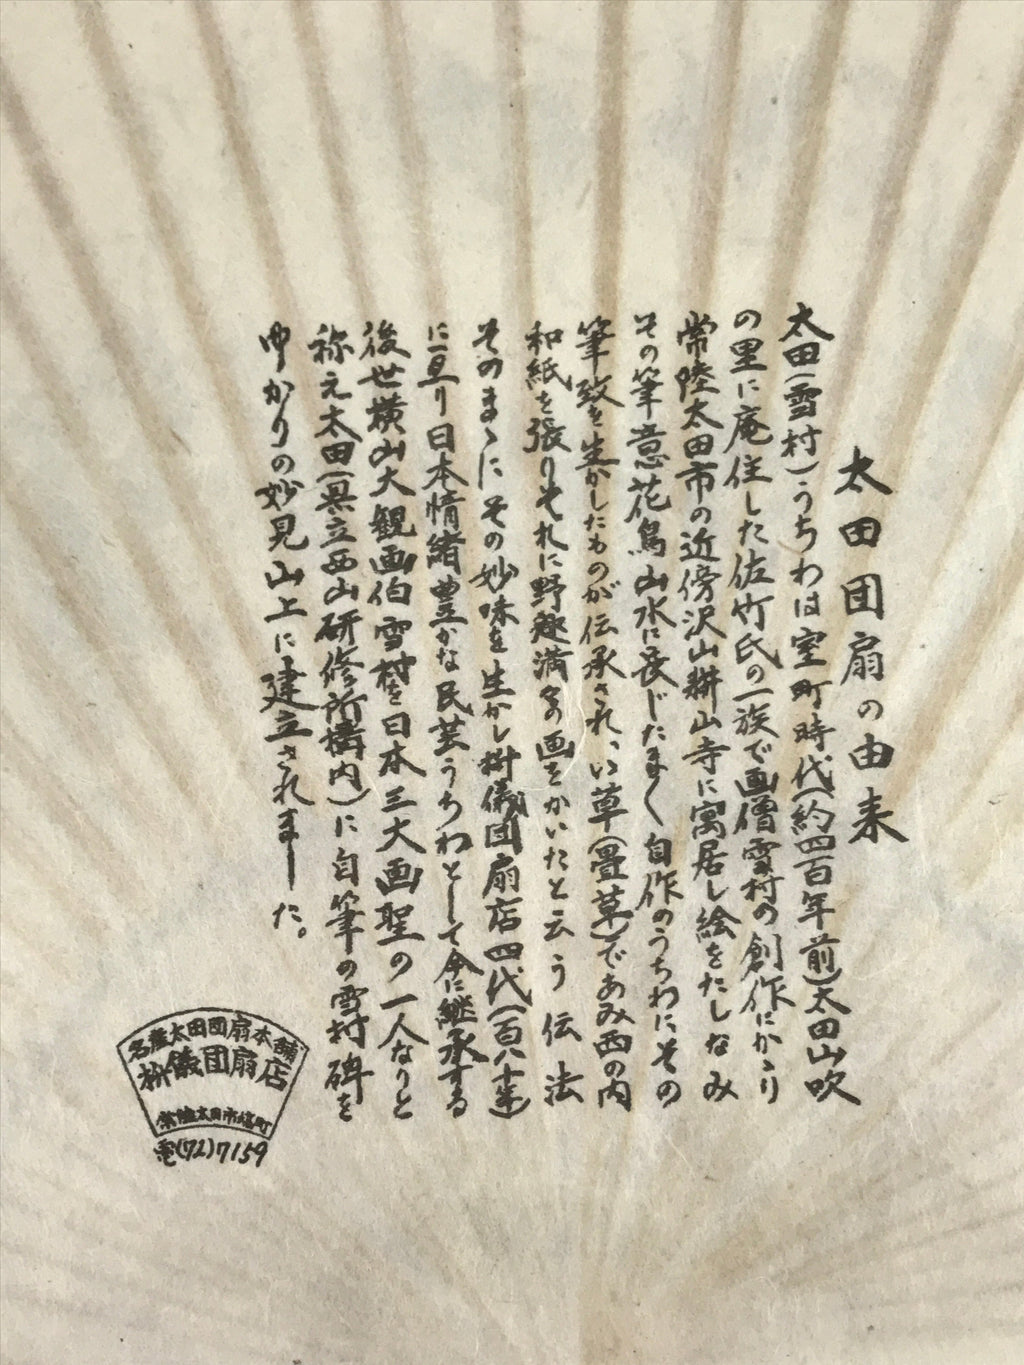 太田団扇の由来
太田(雪村)うちわは室町時代(約四百年前)太田山吹
の里に庵住した佐竹氏の一族で画僧雪村の創作にかゝり
常陸太田市の近傍沢山耕山寺に寓居し絵をたしなみ
その筆意花鳥山水に長じたまく自作のうちわにその
筆致を生かしたものが伝承されい草(畳草)であみ西の内
和紙を張りそれに野趣満々の画をかいたと云う伝法
そのまゝにその妙味を生かし枡儀団扇店四代(百八十年)
に亘り日本情緒豊かな民芸うちわとして今に継承する
後世横山大観画伯雪村を日本三大画聖の一人なりと
称え太田(県立西山研修所構内)に自筆の雪村碑を
ゆかりの妙見山上に建立されました。
名産太田団扇本舗
枡儀団扇店
常陸太田市塙町
電(72)7159